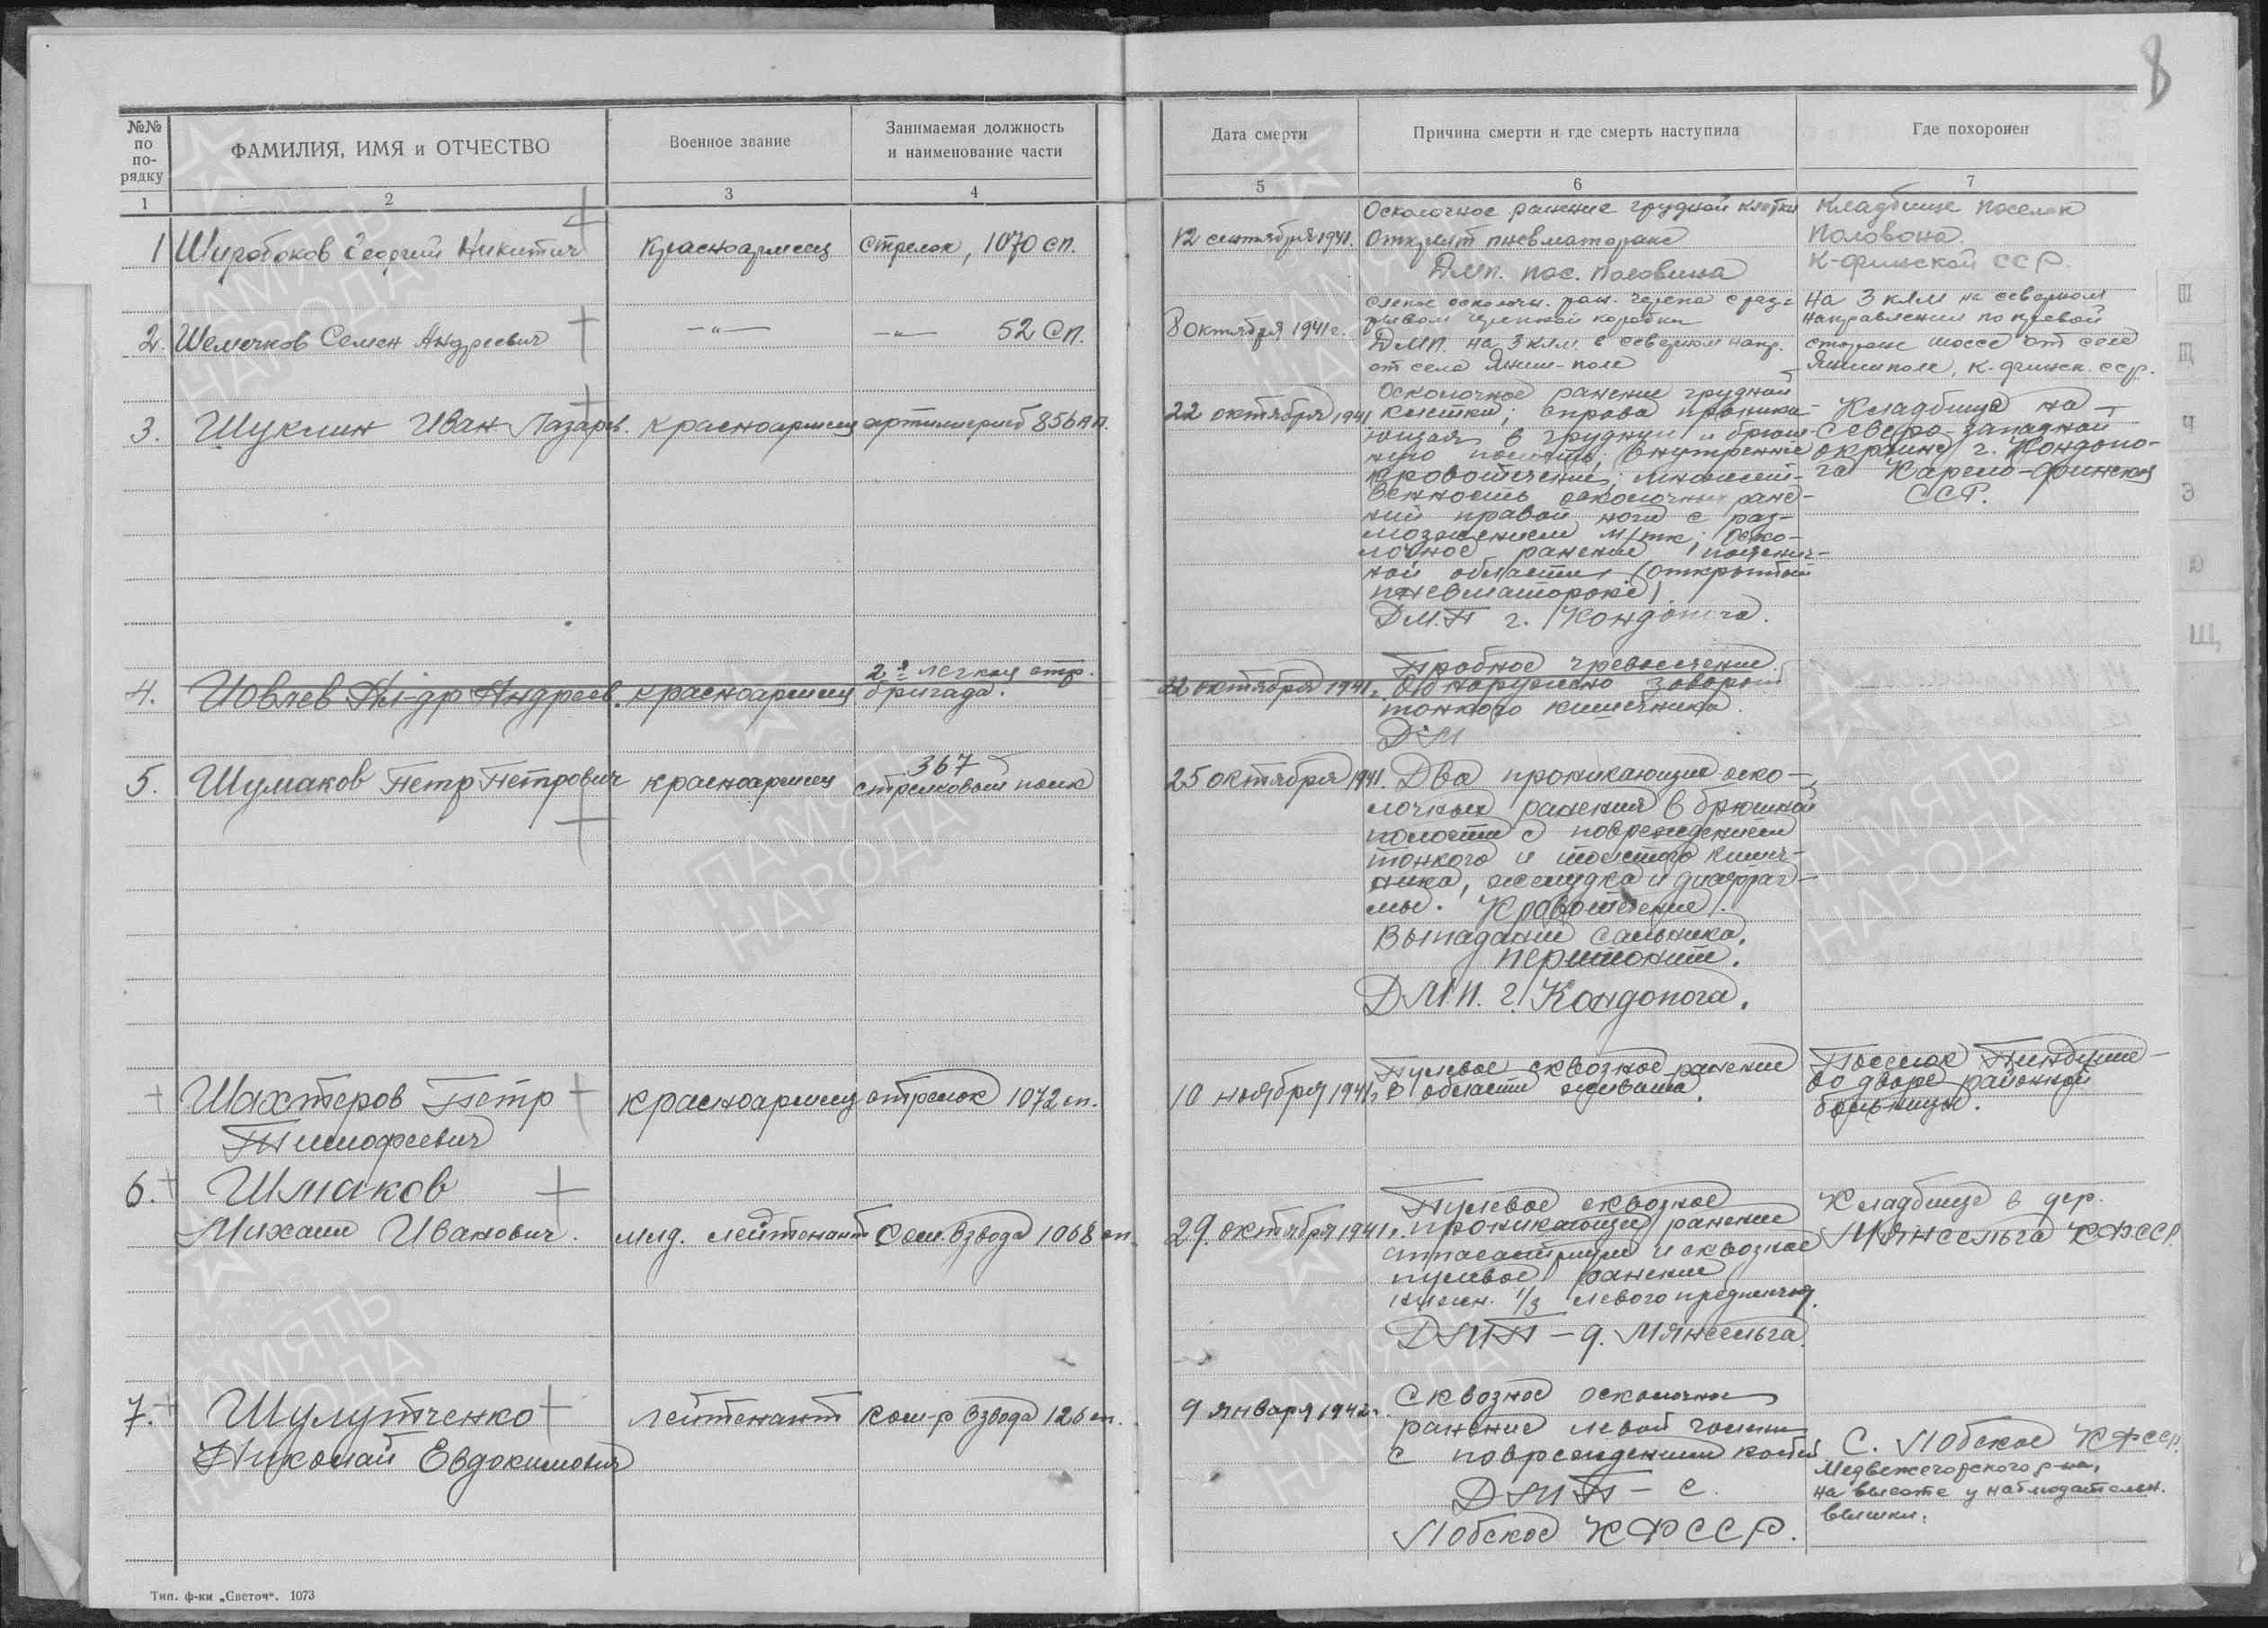 8
№№ по по-рядку
ФАМИЛИЯ, ИМЯ и ОТЧЕСТВО
Военное звание
Занимаемая должность
и наименование части
Дата смерти
Причина смерти и где смерть наступила
Где похоронен
1 2 3 4 5 6 7
1 Широбоков Георгий Никитич
Красноармеец
Стрелок, 1070 сп.
12 сентября 1941.
Осколочное ранение грудной клетки
Открыт. пневматоракс
ДМП. пос. Половина
Кладбище поселок
Половона
К-финской ССР.
2. Шемечков Семен Андреевич
—"—
—"— 52 Сп.
8 октября 1941 г.
слепое осколочн. ран. черепа с раз-
рывом черепной коробки
ДМП. на 3 клм. в северном напр.
от села Яниш-поле
На 3 клм на северном
направлении по правой
стороне шоссе от села
Янишполе, К-финск. сср.
3. Шуклин Иван Лазарев.
красноармеец
артиллерист 856 АП.
22 октября 1941
Осколочное ранение грудной
клетки; справа проника-
ющая в грудную и брюш-
ную полость; внутреннее
кровотечение; множест-
венность осколочных ране-
ний правой ноги с раз-
мозжением м/тк; Оско-
лочное ранение пояснич-
ной области (открытый
пневматоракс)
ДМП г. Кондопога.
Кладбище на
Северо-западной
окраине г. Кондопо-
га Карело-Финская
ССР.
4. Иовлев Ал-др Андреев.
красноармеец
2я легкая стр.
бригада.
22 октября 1941 г.
Пробное чревосечение.
Обнаружено заворот
тонкого кишечника.
ДМ
5. Шумаков Петр Петрович
красноармеец
367
стрелковый полк
25 октября 1941.
Два проникающие оско-
лочных ранения в брюшной
полости с повреждением
тонкого и толстого кишеч-
ника, желудка и диафраг-
мы. Кровотечение.
Выпадание сальника.
перитонит.
ДМП. г. Кондопога.
Шахтеров Петр
Тимофеевич
красноармеец
стрелок 1072 сп.
10 ноября 1941 г.
Пулевое сквозное ранение
в области живота.
Поселок Пиндуши
во дворе районной
больницы.
6. Шмаков
Михаил Иванович.
млд. лейтенант
Ком. взвода 1068 сп.
29 октября 1941 г.
Пулевое сквозное
проникающее ранение
и сквозное
пулевое ранение
нижн. 1/3 левого предплечья.
ДМП – д. Мянсельга.
Кладбище в дер.
Мянсельга КФССР.
7. Шулутченко
Николай Евдокимович
лейтенант
Ком-р взвода 126 сп.
9 января 1942 г.
Сквозное осколочное
ранение левой голени
с повреждением костей
ДМП – с.
Лобское КФССР.
С. Лобское КФССР.
Медвежегорского р-на,
на высоте у наблюдательн.
вышки.
Ш
Щ
Ч
Э
Ю
Щ
Тип. ф-ки „Светоч“. 1073
ПАМЯТЬ
НАРОДА